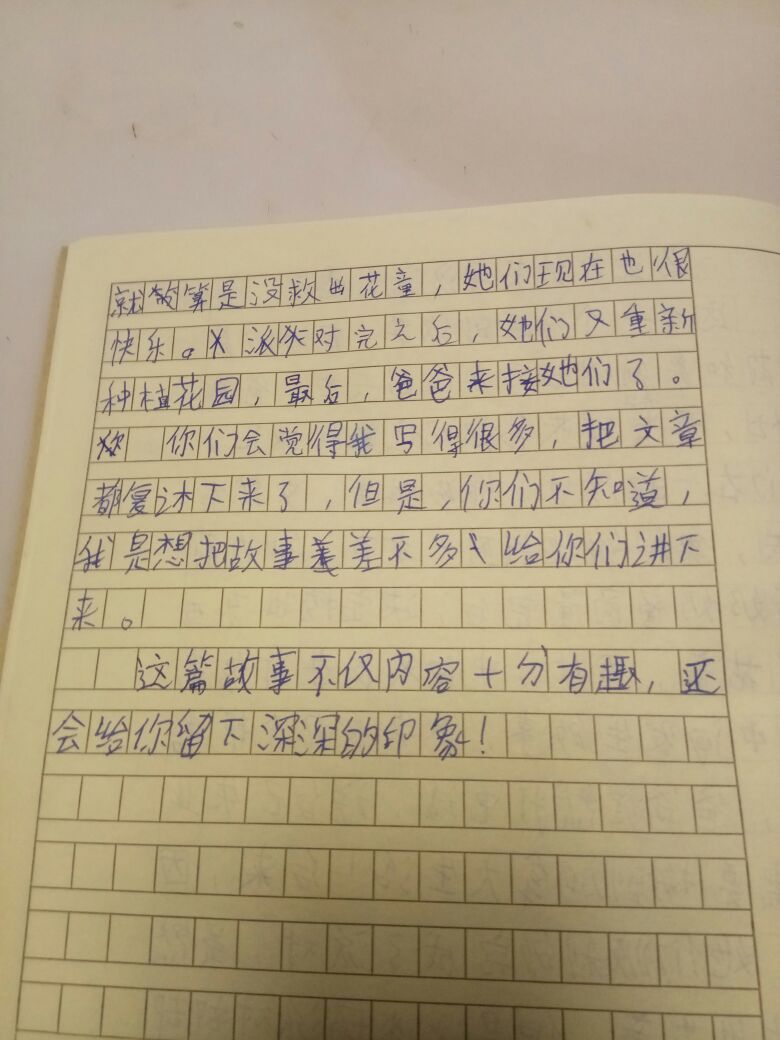 就算是没救出花童，她们现在也很
快乐。派对完之后，她们又重新
种植花园，最后，爸爸来接她们了。
你们会觉得我写得很多，把文章
都复述下来了，但是，你们不知道，
我是想把故事差不多给你们讲下
来。
这篇故事不仅内容十分有趣，还
会给你留下深深的印象！